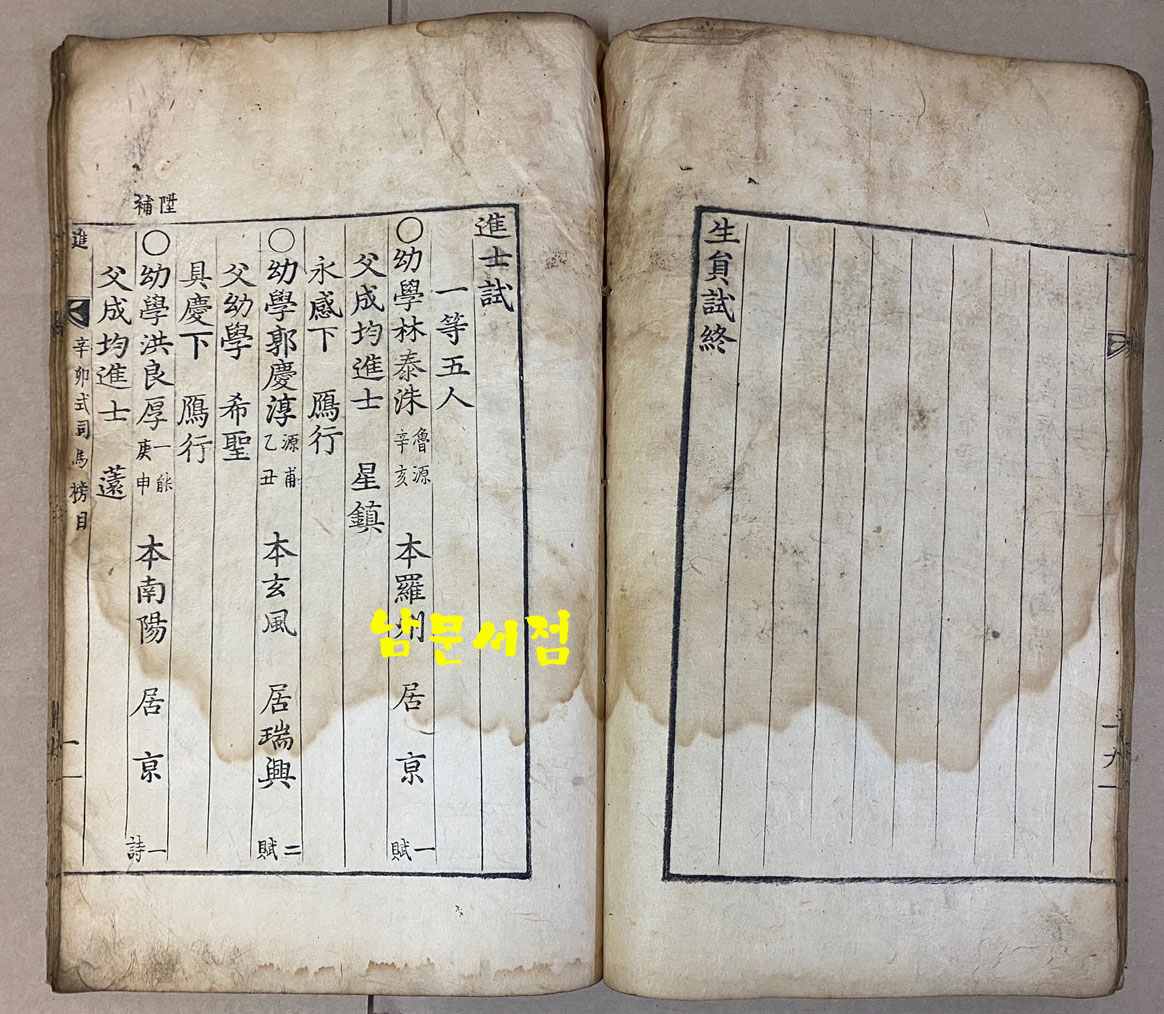 生負試終
一九一
進士試
一等五人
○幼學林泰洙 魯源 辛亥 本羅州 居京 一賦
父成均進士 星鎮
永感下 鴈行
○幼學郭慶淳 源甫 乙丑 本玄風 居瑞興 二賦
父幼學 希聖
具慶下 鴈行
陞補
○幼學洪良厚 一能 庚申 本南陽 居京 一詩
父成均進士 薳
進 辛卯式司馬榜目 一一
남문서점